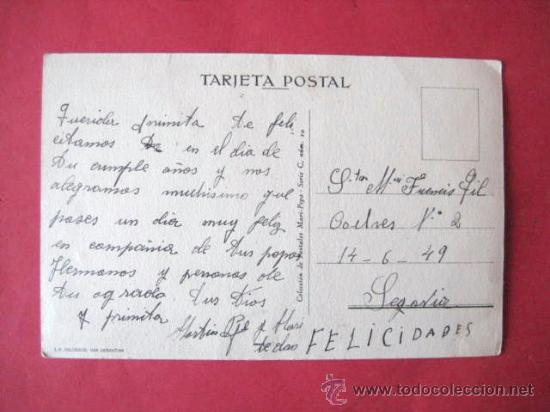 TARJETA POSTAL
Querider primita te feli
citamos en el dia de
tu cumple años y nos
alegramos muchisimo que
pases un dia muy feliz
en compañia de tus papas
Hermanos y personas de
tu agrado Tus Tios
y primita
Mari
FELICIDADES
Colección de Postales Mari-Pepa - Serie C, núm. 10
Sta Mª Fuencis Gil
Nº 2
14-6-49
Segovia
SAN SEBASTIAN
www.todocoleccion.net